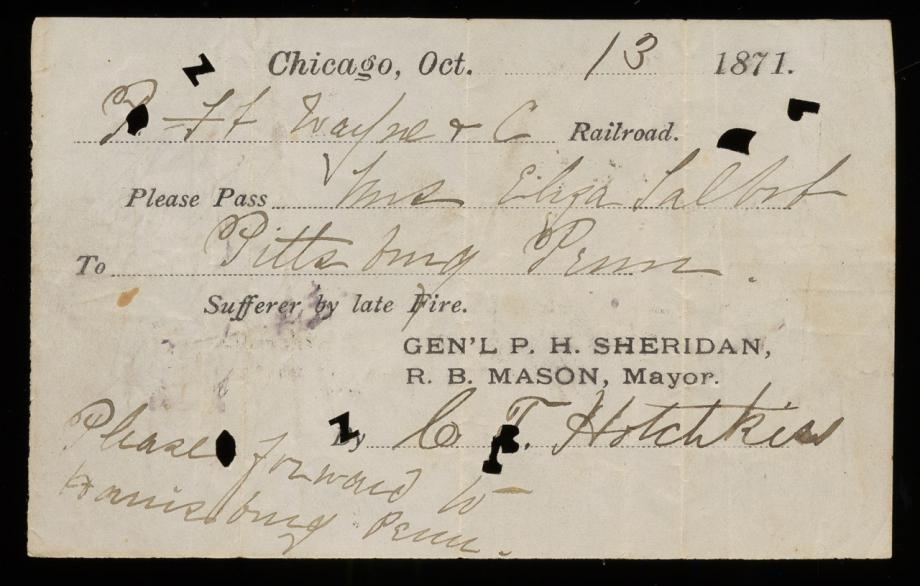 Chicago, Oct. 13 1871.
P. Ft Wayne & C Railroad.
Please Pass Mrs Eliza Talbot
To Pittsburg Penn.
Sufferer by late Fire.
GEN'L P. H. SHERIDAN,
R. B. MASON, Mayor.
By C. T. Hotchkiss
Please forward to
Harrisburg Penn.